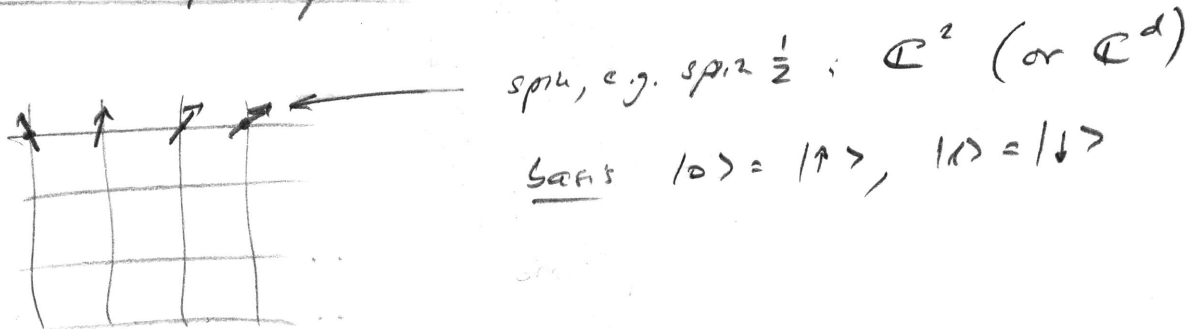 spin, e.g. spin 1/2 : ℂ² (or ℂᵈ)
basis |0> = |↑>, |1> = |↓>